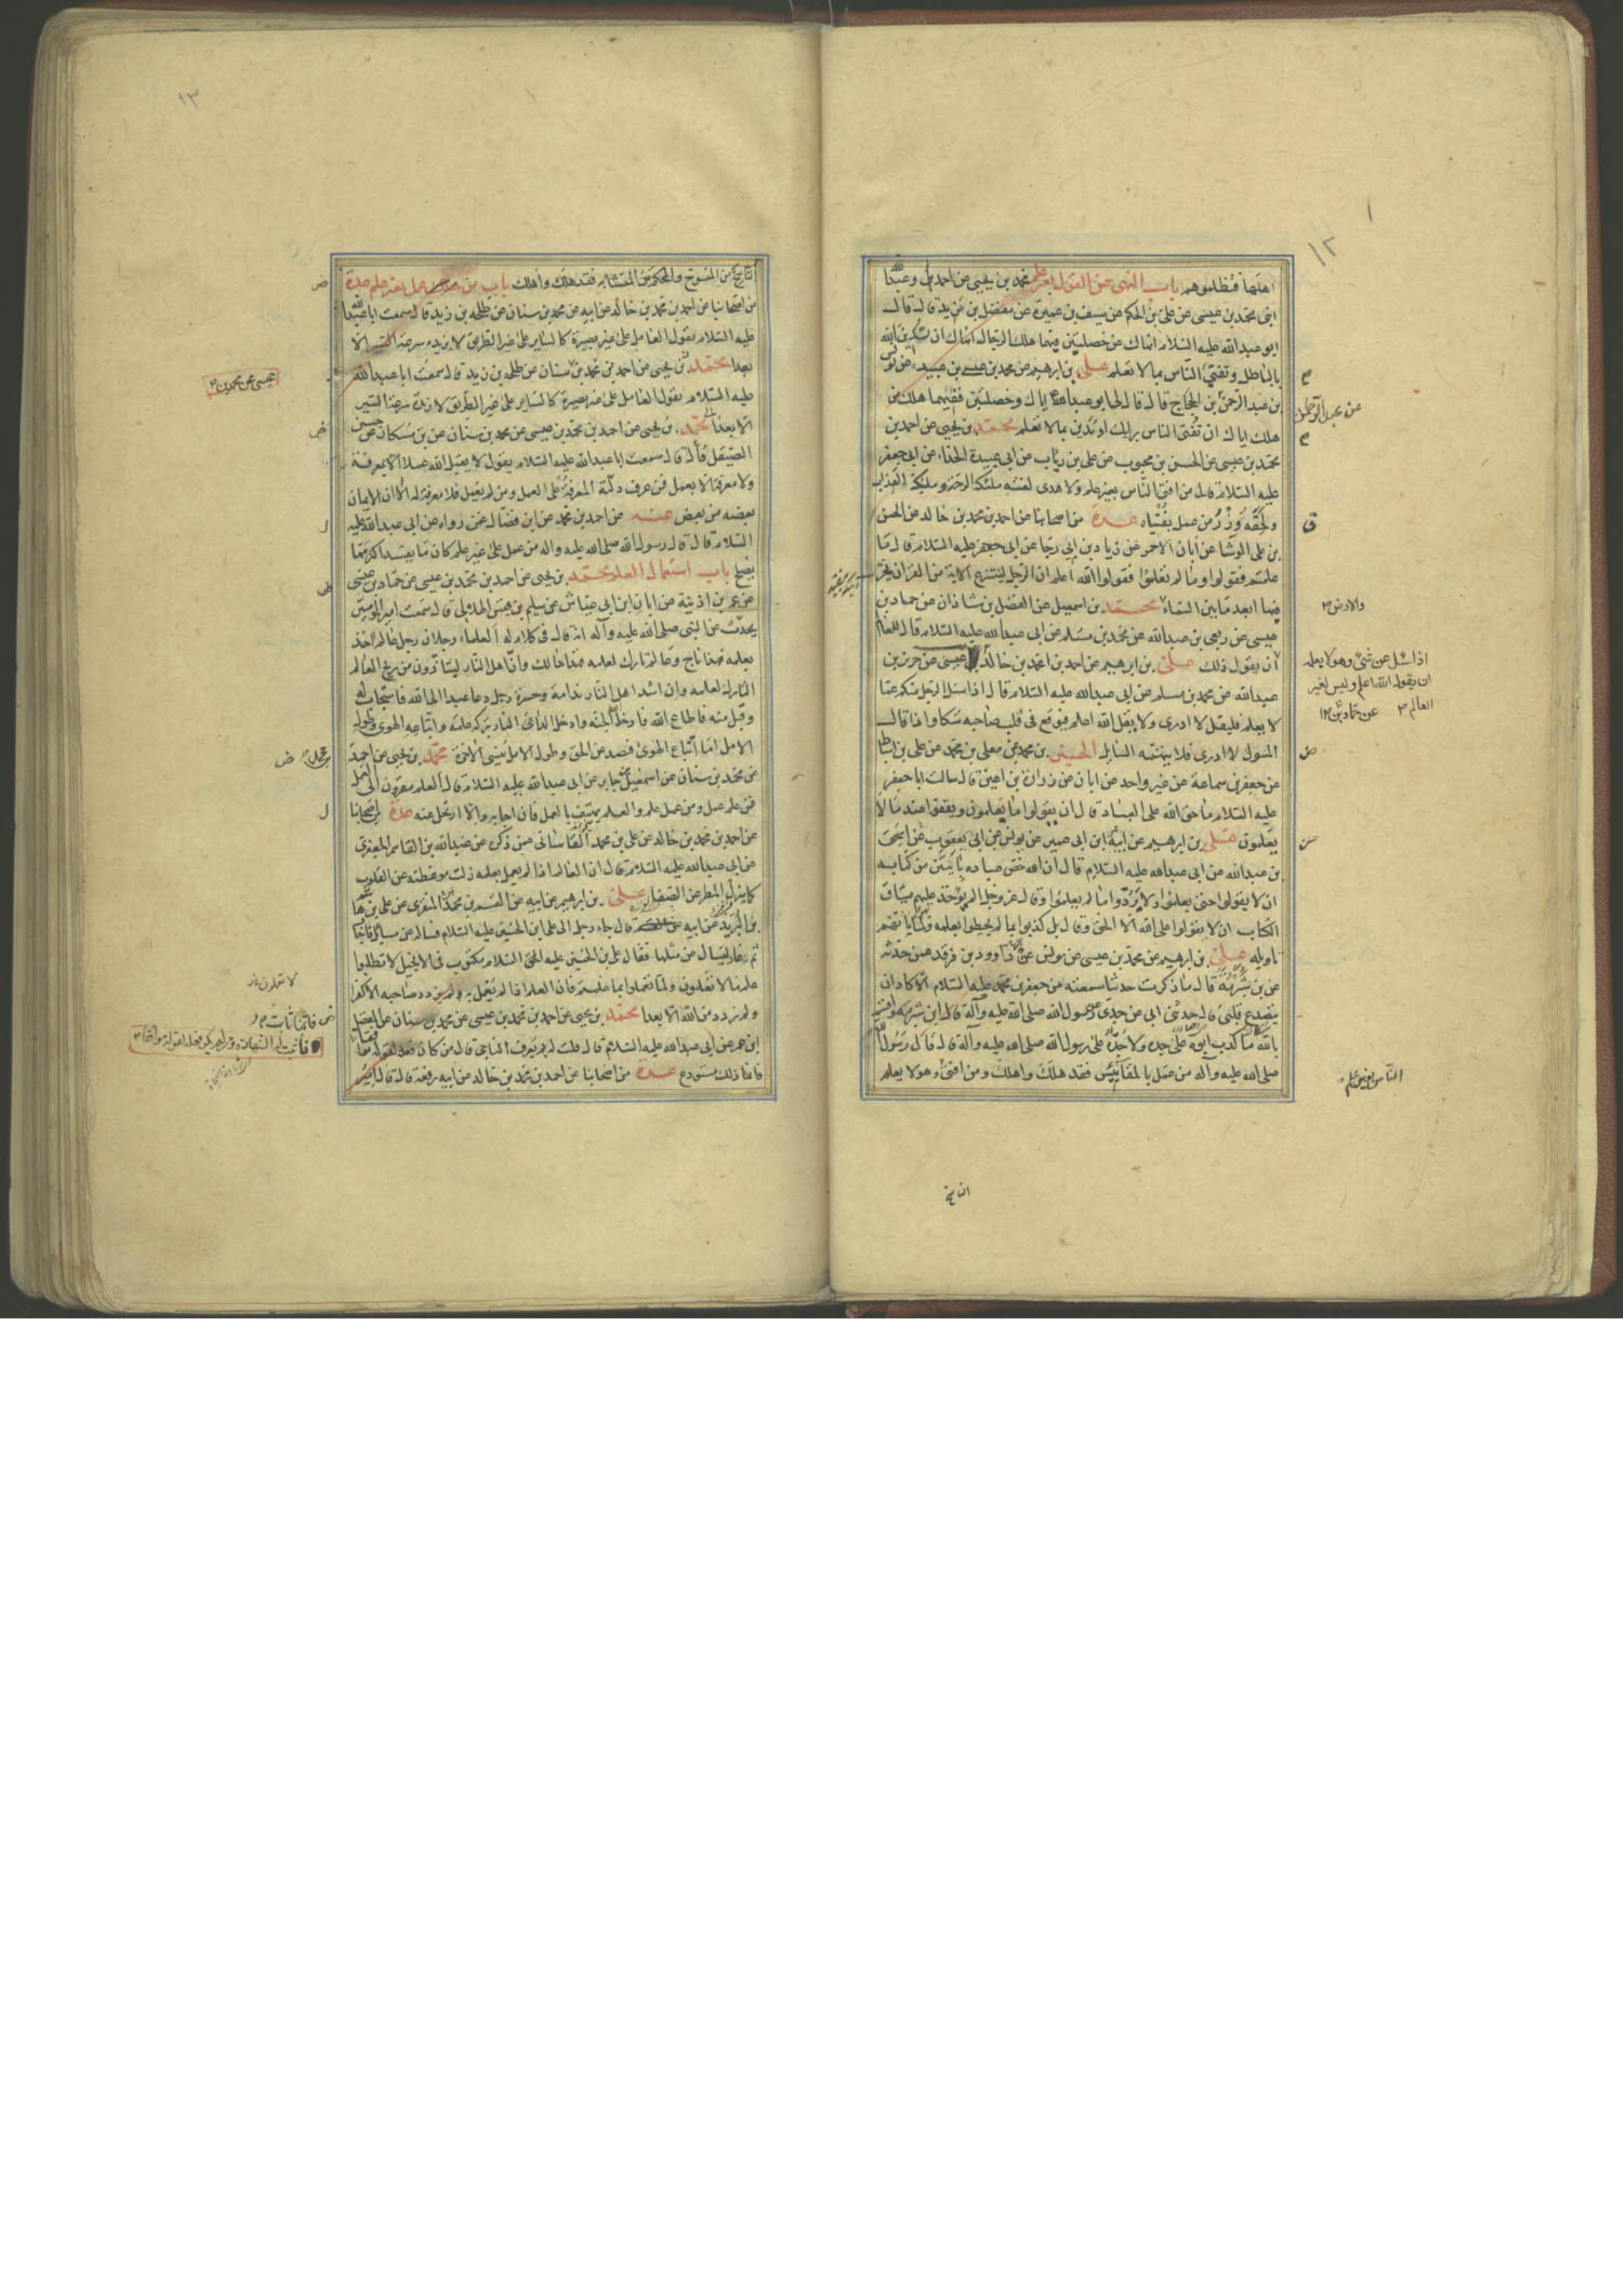 ١٢
اهلها فتظلموهم باب النهى عن القول بغير علم محمد بن يحيى عن احمد وعبدالله
ابنى محمد بن عيسى عن على بن الحكم عن سيف بن عميرة عن مفضل بن مزيد قال قال
ابو عبدالله عليه السلام انهاك عن خصلتين فيهما هلك الرجال انهاك ان تدين الله
بالباطل وتفتى الناس بما لا تعلم على بن ابرهيم عن محمد بن عيسى بن عبيد عن يونس
بن عبد الرحمن بن الحجاج قال قال لى ابو عبدالله اياك وخصلتين ففيهما هلك من
هلك اياك ان تفتى الناس برايك او تدين بما لا تعلم محمد بن يحيى عن احمد بن
محمد بن عيسى عن الحسن بن محبوب عن على بن رئاب عن ابى عبيدة الحذاء عن ابى جعفر
عليه السلام قال من افتى الناس بغير علم ولا هدى لعنته ملئكة الرحمة وملئكة العذاب
ولحقه وزر من عمل بفتياه عدة من اصحابنا عن احمد بن محمد بن خالد عن الحسن
بن على الوشا عن ابان الاحمر عن زياد بن ابى رجا عن ابى جعفر عليه السلام قال ما
علمتم فقولوا وما لم تعلموا فقولوا الله اعلم ان الرجل لينتزع الاية من القران يخر
فيها ابعد ما بين السماء محمد بن اسمعيل عن الفضل بن شاذان عن حماد بن
عيسى عن ربعى بن عبدالله عن محمد بن مسلم عن ابى عبدالله عليه السلام قال للعالم
ان يقول ذلك على بن ابرهيم عن احمد بن محمد بن خالد عيسى عن حريز بن
عبدالله عن محمد بن مسلم عن ابى عبدالله عليه السلام قال اذا سئل الرجل منكم عما
لا يعلم فليقل لا ادرى ولا يقل الله اعلم فيوقع فى قلب صاحبه شكا واذا قال
المسؤل لا ادرى فلا يتهمه السايل الحسين بن محمد عن معلى بن محمد عن على بن اسباط
عن جعفر بن سماعة عن غير واحد عن ابان عن زرارة بن اعين قال سالت ابا جعفر
عليه السلام ما حق الله على العباد قال ان يقولوا ما يعلمون ويقفوا عند ما لا
يعلمون على بن ابرهيم عن ابيه ابن ابى عمير عن يونس عن ابى يعقوب عن اسحق
بن عبدالله عن ابى عبدالله عليه السلام قال ان الله خص عباده بايتين من كتابه
ان لا يقولوا حتى يعلموا ولا يردوا ما لم يعلموا وقال عز وجل الم يؤخذ عليهم ميثاق
الكتاب ان لا يقولوا على الله الا الحق وقال بل كذبوا بما لم يحيطوا بعلمه ولما ياتهم
تاويله على بن ابرهيم عن محمد بن عيسى عن يونس عن داوود بن فرقد عمن حدثه
عن بن شبرمة قال ما ذكرت حديثا سمعته من جعفر بن محمد عليه السلام الا كاد ان
يتصدع قلبى قال حدثنى ابى عن جدى عن رسول الله صلى الله عليه وآله قال ابن شبرمة واقسم
بالله ما كذب ابوه على جده ولا جده على رسول الله صلى الله عليه وآله قال قال رسول الله
صلى الله عليه وآله من عمل بالمقاييس فقد هلك واهلك ومن افتى وهو لا يعلم
عن عبد الرحمن
والارض
اذا سئل عن شئ وهو لا يعلمه
ان يقول الله اعلم وليس لغير
العالم عن حماد بن
الناس بغير علم
الناسخ
١٣
الناسخ من المنسوخ والمحكم من المتشابه فقد هلك واهلك باب من عمل بغير علم عدة
من اصحابنا عن احمد بن محمد بن خالد عن ابيه عن محمد بن سنان عن طلحه بن زيد قال سمعت ابا عبدالله
عليه السلام يقول العامل على غير بصيرة كالساير على غير الطريق لا يزيده سرعة السير الا
بعدا محمد بن يحيى عن احمد بن محمد بن سنان عن طلحه بن زيد قال سمعت ابا عبدالله
عليه السلام يقول العامل على غير بصيرة كالساير على غير الطريق لا يزيده سرعة السير
الا بعدا محمد بن يحيى عن احمد بن محمد بن عيسى عن محمد بن سنان عن بن مسكان عن حسين
الصيقل قال سمعت ابا عبدالله عليه السلام يقول لا يقبل الله عملا الا بمعرفة
ولا معرفة الا بعمل فمن عرف دلته المعرفة على العمل ومن لم يعمل فلا معرفة له الا ان الايمان
بعضه من بعض عنه عن احمد بن محمد عن ابن فضال عمن رواه عن ابى عبدالله عليه
السلام قال قال رسول الله صلى الله عليه واله من عمل على غير علم كان ما يفسد اكثر مما
يصلح باب استعمال العلم محمد بن يحيى عن احمد بن محمد بن عيسى عن حماد بن عيسى
عن عمر بن اذينة عن ابان ابن ابى عياش عن سليم بن قيس الهلالى قال سمعت امير المؤمنين
يحدث عن النبى صلى الله عليه وآله انه قال فى كلام له العلماء رجلان رجل عالم اخذ
بعلمه فهذا ناج وعالم تارك لعلمه فهذا هالك وان اهل النار ليتاذون من ريح العالم
التارك لعلمه وان اشد اهل النار ندامة وحسرة رجل دعا عبدا الى الله فاستجاب له
وقبل منه فاطاع الله فادخله الجنه وادخل الداعى النار بتركه علمه واتباعه الهوى وطول
الامل اما اتباع الهوى فيصد عن الحق وطول الامل ينسى الاخرة محمد بن يحيى عن احمد
عن محمد بن سنان عن اسمعيل بن جابر عن ابى عبدالله عليه السلام قال العلم مقرون الى العمل
فمن علم عمل ومن عمل علم والعلم يهتف بالعمل فان اجابه والا ارتحل عنه عدة من اصحابنا
عن احمد بن محمد بن خالد عن على بن محمد القاسانى عمن ذكره عن عبدالله بن القاسم الجعفرى
عن ابى عبدالله عليه السلام قال ان العالم اذا لم يعمل بعلمه زلت موعظته عن القلوب
كما يزل المطر عن الصفا على بن ابرهيم عن ابيه عن القسم بن محمد المنقرى عن على بن هاشم
بن البريد عن ابيه قال جاء رجل الى على بن الحسين عليه السلام فساله عن مسايل فاجاب
ثم عاد ليسال عن مثلها فقال على بن الحسين عليه السلام مكتوب فى الانجيل لا تطلبوا
علم ما لا تعلمون ولما تعملوا بما علمتم فان العلم اذا لم يعمل به لم يزدد صاحبه الا كفرا
ولم يزدد من الله الا بعدا محمد بن يحيى عن احمد بن محمد بن عيسى عن محمد بن سنان عن المفضل
ابن عمر عن ابى عبدالله عليه السلام قال قلت له بم يعرف الناجى قال من كان فعله لقوله موافقا
فانما ذلك مستودع عدة من اصحابنا عن احمد بن محمد بن خالد عن ابيه رفعه قال قال امير
عيسى عن محمد بن